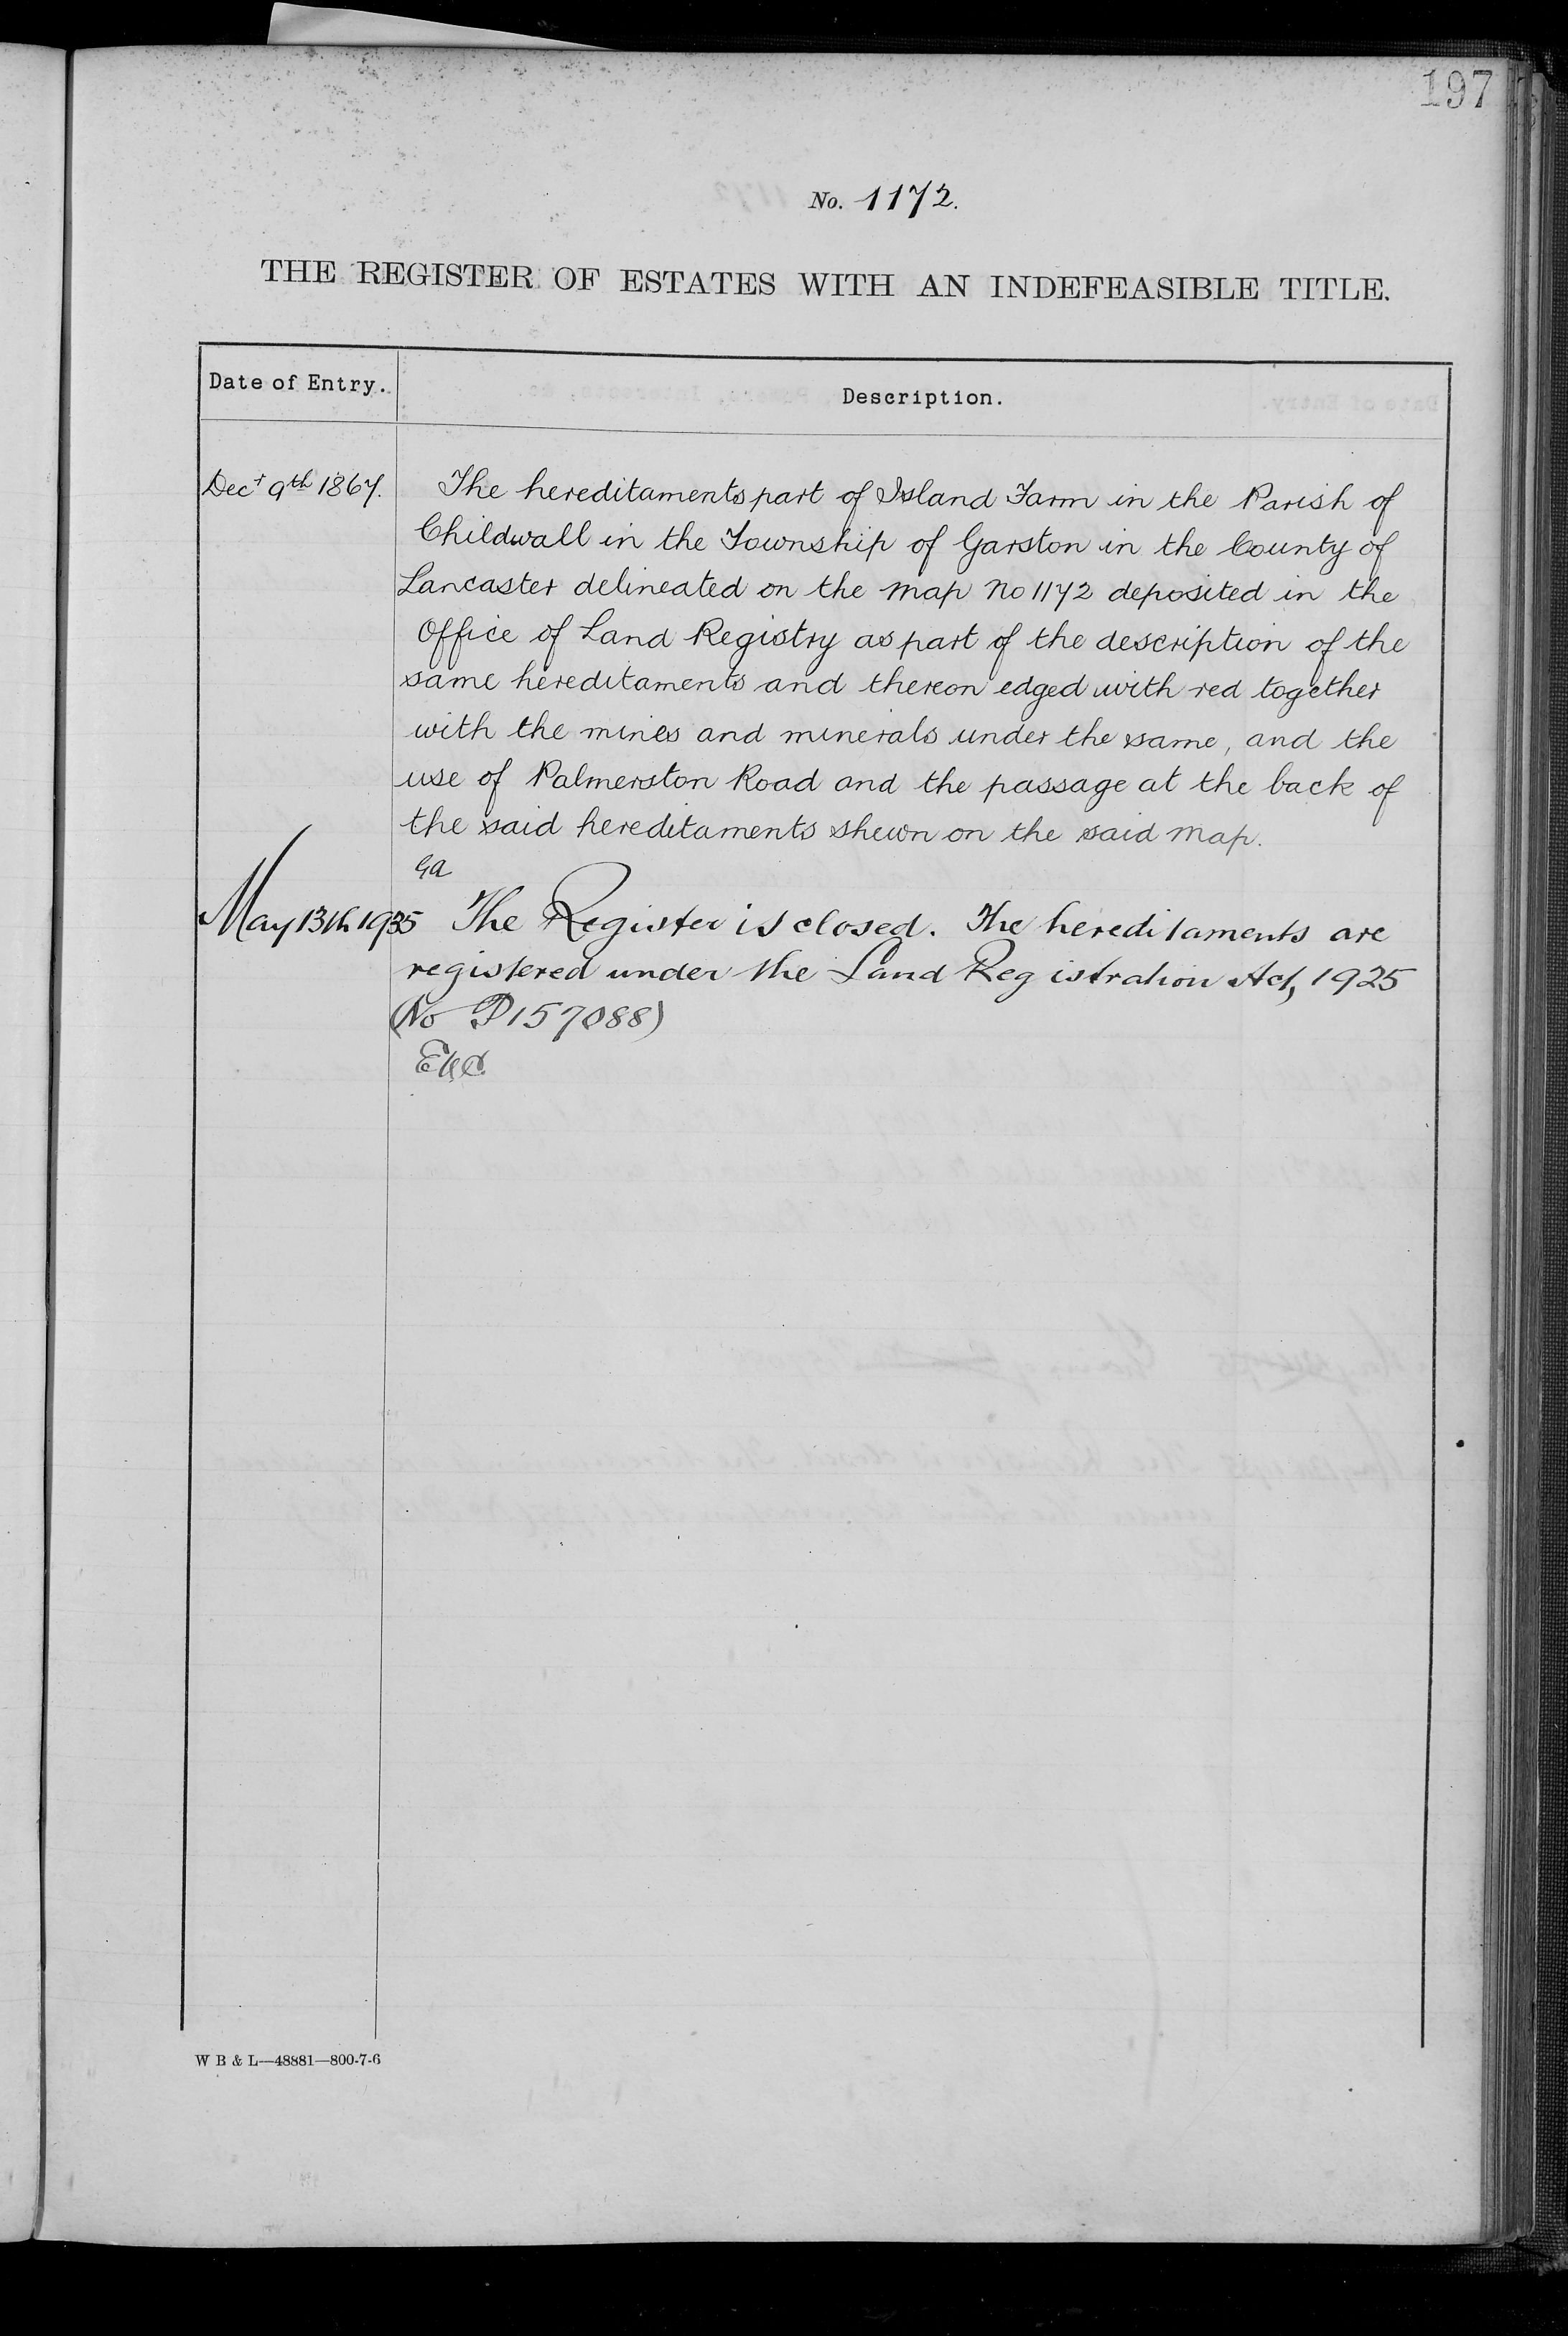 197
No. 1172.
THE REGISTER OF ESTATES WITH AN INDEFEASIBLE TITLE.
Date of Entry.
Description.
Decr 9th 1867.
The hereditaments part of Island Farm in the Parish of
Childwall in the Township of Garston in the County of
Lancaster delineated on the map No 1172 deposited in the
Office of Land Registry as part of the description of the
same hereditaments and thereon edged with red together
with the mines and minerals under the same, and the
use of Palmerston Road and the passage at the back of
the said hereditaments shewn on the said map.
GA
May 13th 1935 The Register is closed. The hereditaments are
registered under the Land Registration Act, 1925
(No P157088)
W B & L—48881—800-7-6